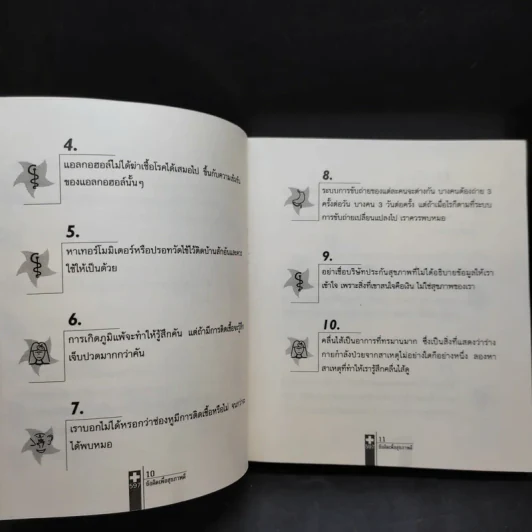 4.
แอลกอฮอล์ไม่ได้ฆ่าเชื้อโรคได้เสมอไป ขึ้นกับความเข้มข้น
ของแอลกอฮอล์นั้นๆ
5.
หาเทอร์โมมิเตอร์หรือปรอทวัดไข้ไว้ติดบ้านสักอันและควร
ใช้ให้เป็นด้วย
6.
การเกิดภูมิแพ้จะทำให้รู้สึกคัน แต่ถ้ามีการติดเชื้อจะรู้สึก
เจ็บปวดมากกว่าคัน
7.
เราบอกไม่ได้หรอกว่าช่องหูมีการติดเชื้อหรือไม่ จนกว่าจะ
ได้พบหมอ
597
10
ข้อคิดเพื่อสุขภาพดี
8.
ระบบการขับถ่ายของแต่ละคนจะต่างกัน บางคนต้องถ่าย 3
ครั้งต่อวัน บางคน 3 วันต่อครั้ง แต่ถ้าเมื่อไรก็ตามที่ระบบ
การขับถ่ายเปลี่ยนแปลงไป เราควรพบหมอ
9.
อย่าเชื่อบริษัทประกันสุขภาพที่ไม่ได้อธิบายข้อมูลให้เรา
เข้าใจ เพราะสิ่งที่เขาสนใจคือเงิน ไม่ใช่สุขภาพของเรา
10.
คลื่นไส้เป็นอาการที่ทรมานมาก ซึ่งเป็นสิ่งที่แสดงว่าร่าง
กายกำลังป่วยจากสาเหตุไม่อย่างใดก็อย่างหนึ่ง ลองหา
สาเหตุที่ทำให้เรารู้สึกคลื่นไส้ดู
597
11
ข้อคิดเพื่อสุขภาพดี